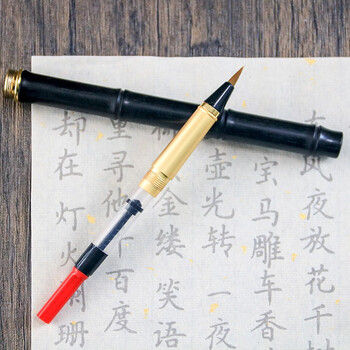 风夜放花千
宝马雕车香
壶光转一夜
金缕笑语
里寻他百度
却在灯火珊